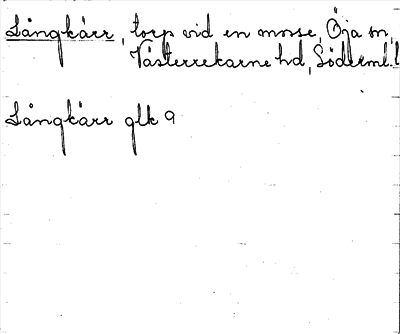 Långkärr, torp vid en mosse, Öja sn,
Västerrekarne hd, Söderml. l
Långkärr glk 9